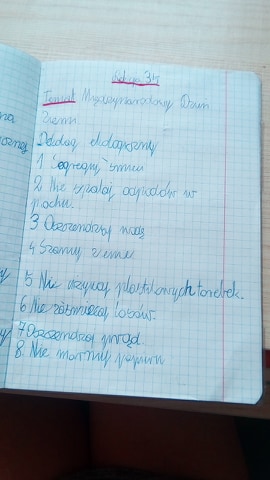 Lekcja 34
Temat: Międzynarodowy Dzień
Ziemi.
Dekalog ekologiczny
1 Segreguj śmieci
2 Nie spalaj odpadów w
piecu.
3 Oszczędzaj wodę
4 Szanuj ziemię
5 Nie używaj plastikowych torebek.
6 Nie zaśmiecaj lasów.
7 Oszczędzaj prąd.
8. Nie marnuj papieru